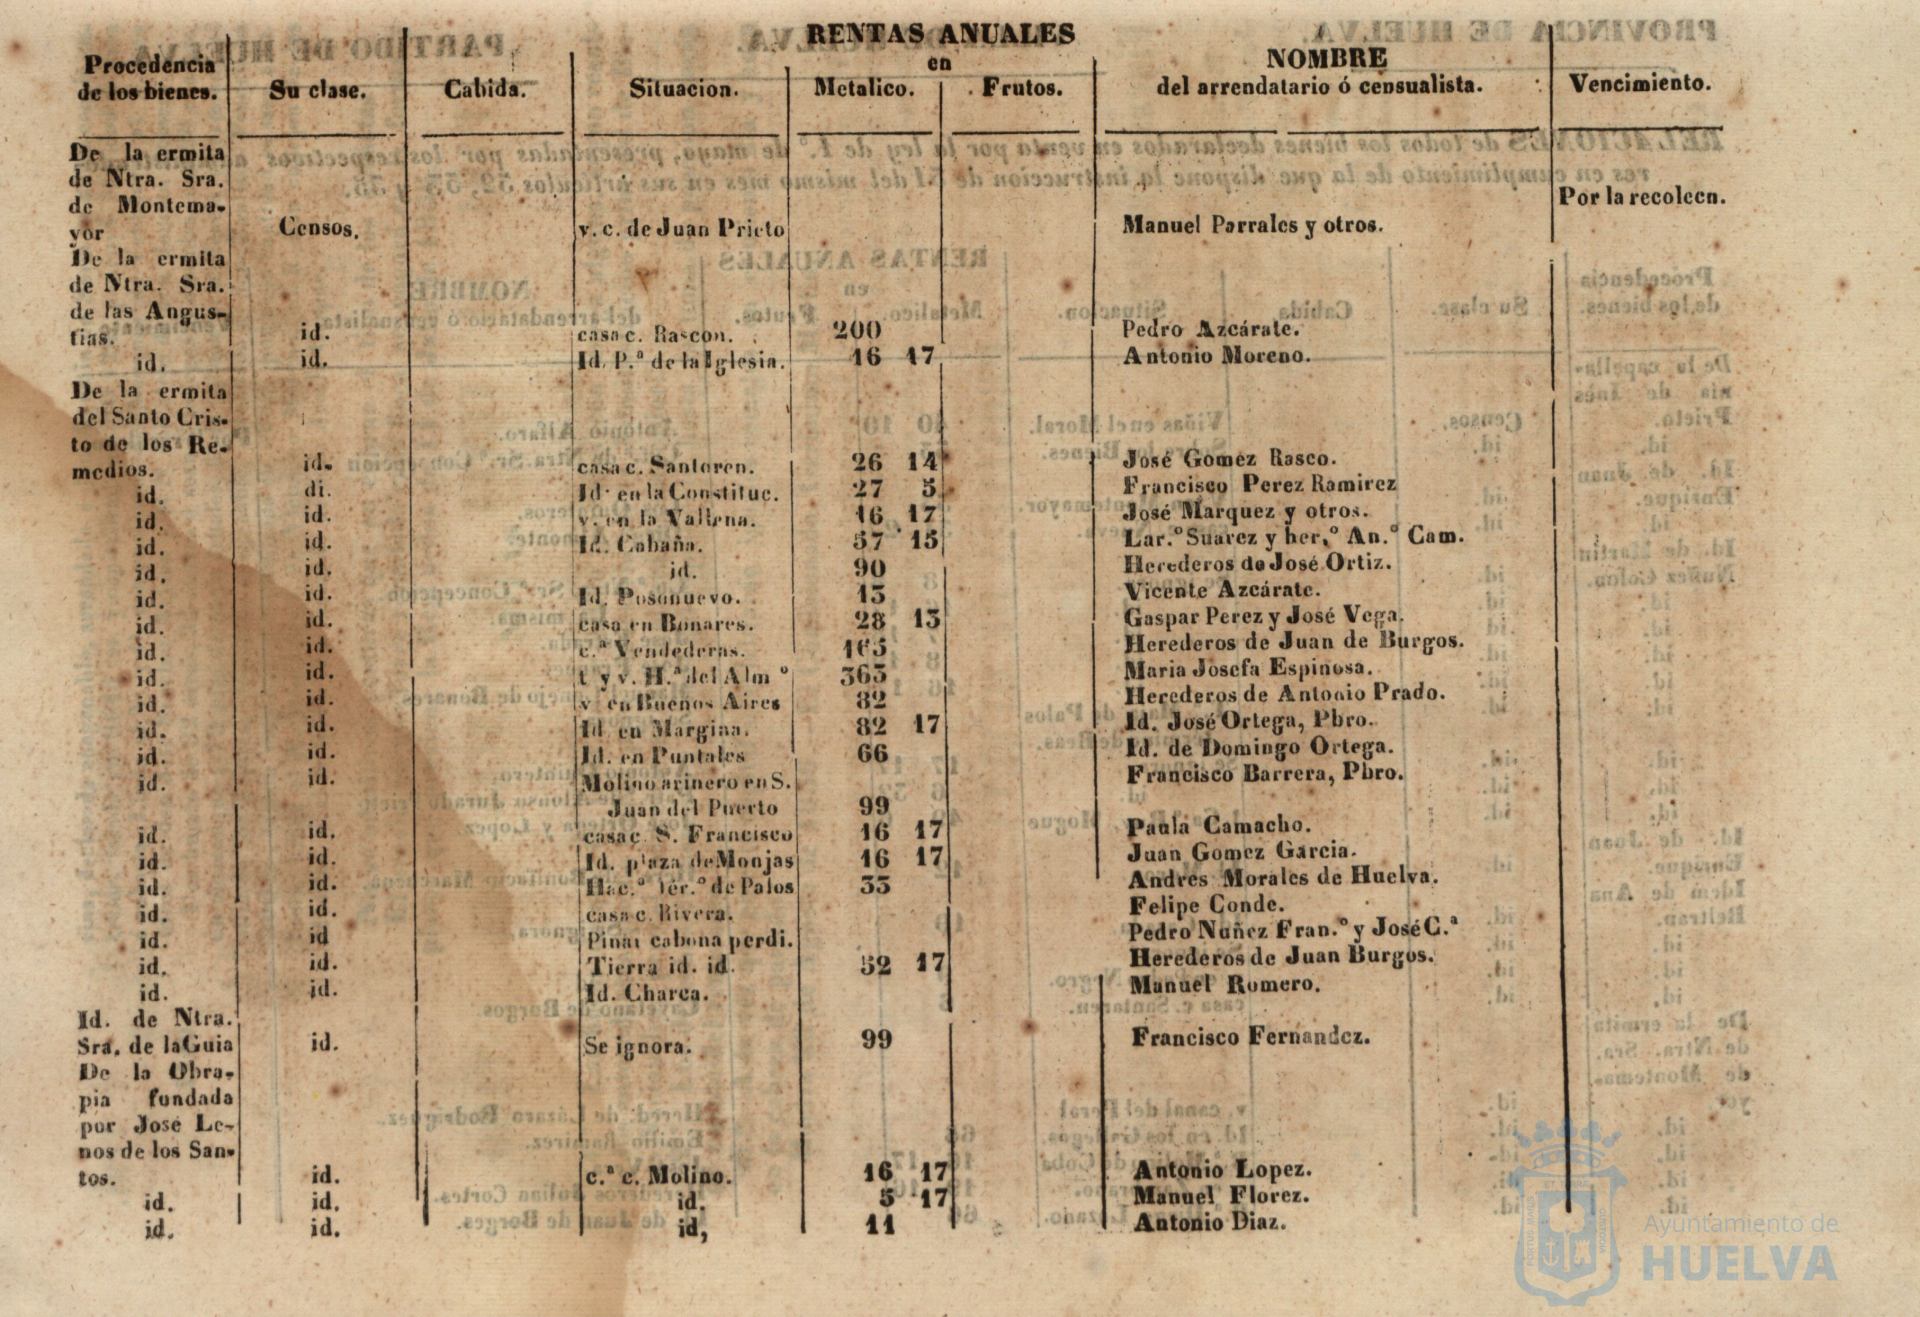 RENTAS ANUALES
en
Procedencia de los bienes. Su clase. Cabida. Situacion. Metalico. Frutos. NOMBRE del arrendatario ó censualista. Vencimiento.
De la ermita
de Ntra. Sra.
de Montema-
yor Censos. v. c. de Juan Prieto Manuel Parrales y otros. Por la recolecn.
De la ermita
de Ntra. Sra.
de las Angus-
tias. id. casa c. Rascon. 200 Pedro Azcárate.
id. id. Id. P.ª de la Iglesia. 16 17 Antonio Moreno.
De la ermita
del Santo Cris-
to de los Re-
medios. id. casa c. Santaren. 26 14 José Gomez Rasco.
id. di. Id. en la Constituc. 27 5 Francisco Perez Ramirez
id. id. v. en la Vallena. 16 17 José Marquez y otros.
id. id. Id. Cabaña. 57 15 Lar.º Suarez y her.º An.º Cam.
id. id. id. 90 Herederos de José Ortiz.
id. id. Id. Posonuevo. 13 Vicente Azcárate.
id. id. casa en Bonares. 28 13 Gaspar Perez y José Vega.
id. id. c.ª Vendederas. 165 Herederos de Juan de Burgos.
id. id. t. y v. H.ª del Alm º 365 Maria Josefa Espinosa.
id. id. v. en Buenos Aires 82 Herederos de Antonio Prado.
id. id. Id en Margina. 82 17 Id. José Ortega, Pbro.
id. id. Id. en Puntales 66 Id. de Domingo Ortega.
id. id. Molino arinero en S. Francisco Barrera, Pbro.
Juan del Puerto 99
id. id. casa c. S. Francisco 16 17 Paula Camacho.
id. id. Id. plaza de Monjas 16 17 Juan Gomez Garcia.
id. id. Hac.ª tér.º de Palos 33 Andres Morales de Huelva.
id. id. casa c. Rivera. Felipe Conde.
id. id Pinar cabona perdi. Pedro Nuñez Fran.º y José C.ª
id. id. Tierra id. id. 52 17 Herederos de Juan Burgos.
id. id. Id. Charca. Manuel Romero.
Id. de Ntra.
Sra. de la Guia id. Se ignora. 99 Francisco Fernandez.
De la Obra-
pia fundada
por José Le-
nos de los San-
tos. id. c.ª c. Molino. 16 17 Antonio Lopez.
id. id. id. 5 17 Manuel Florez.
id. id. id, 11 Antonio Diaz.
Ayuntamiento de
HUELVA